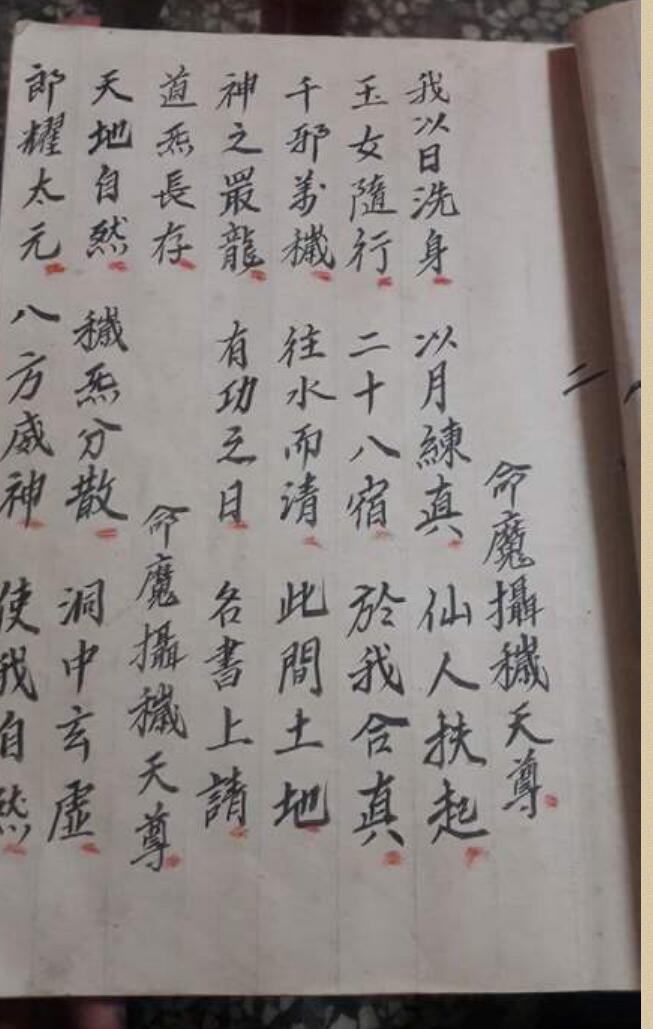 命魔攝穢天尊
我以日洗身 以月練真 仙人扶起
玉女隨行 二十八宿 於我合真
千邪萬穢 往水而清 此間土地
神之最龍 有功之日 名書上請
道炁長存 命魔攝穢天尊
天地自然 穢炁分散 洞中玄虛
郎耀太元 八方威神 使我自然
二